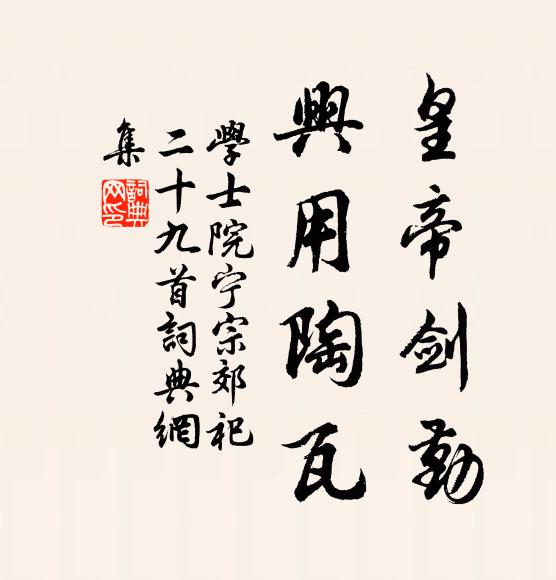 皇帝剑勤
興用陶瓦
學士院宁宗郊祀
二十九首詞典網
集
詞典
网印